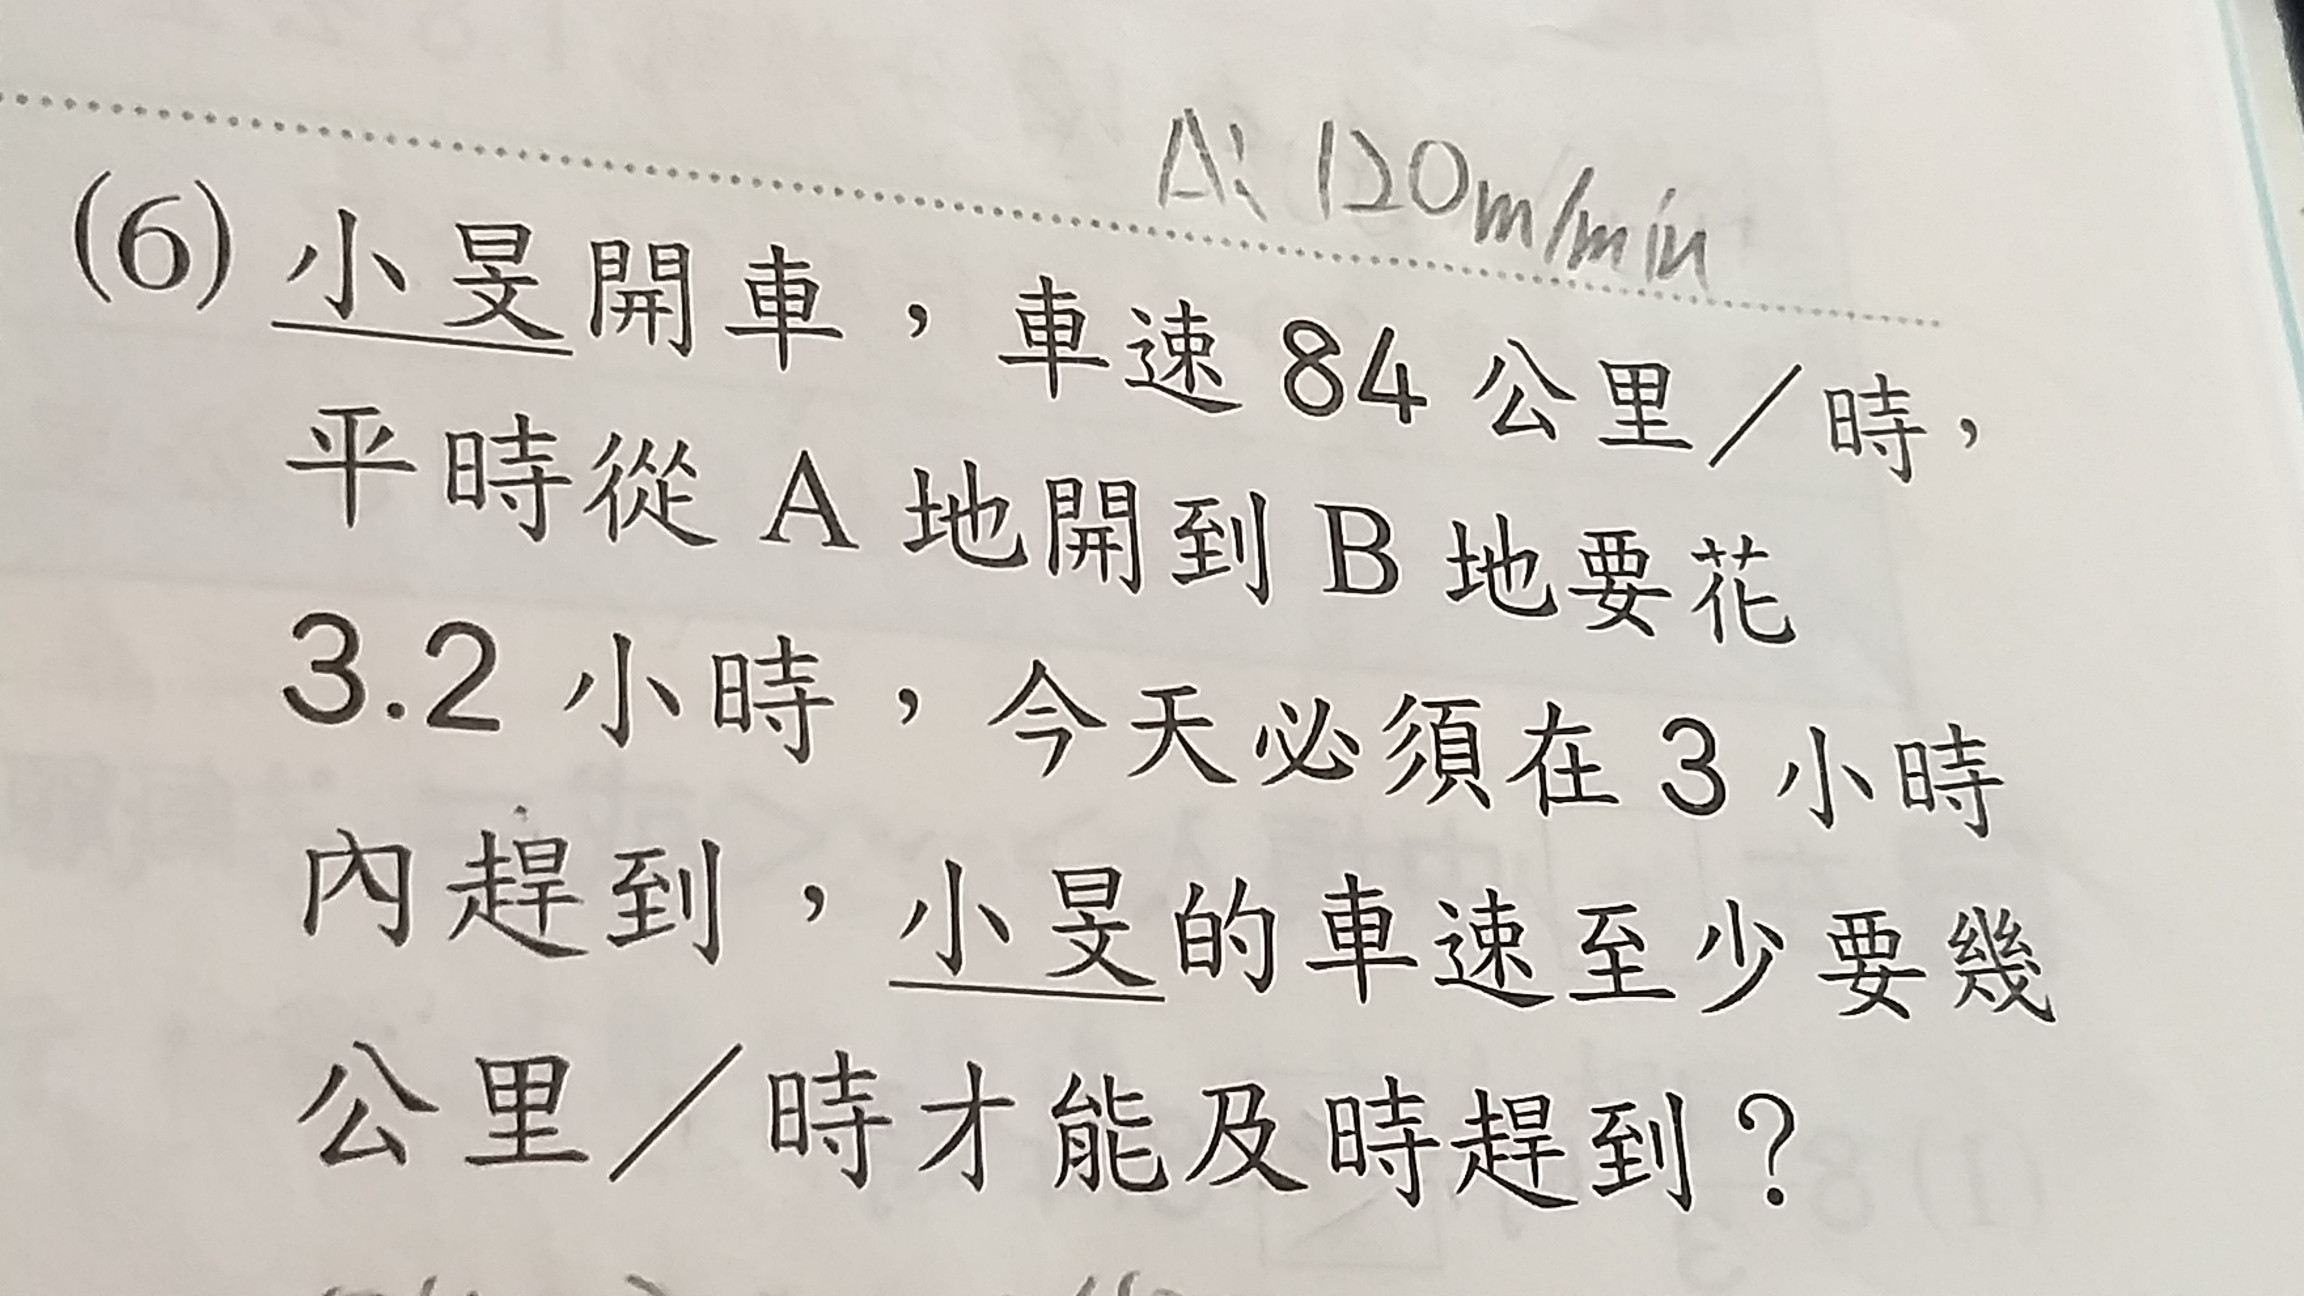 A: 120m/min
(6) 小旻開車，車速 84 公里／時，
平時從 A 地開到 B 地要花
3.2 小時，今天必須在 3 小時
內趕到，小旻的車速至少要幾
公里／時才能及時趕到？